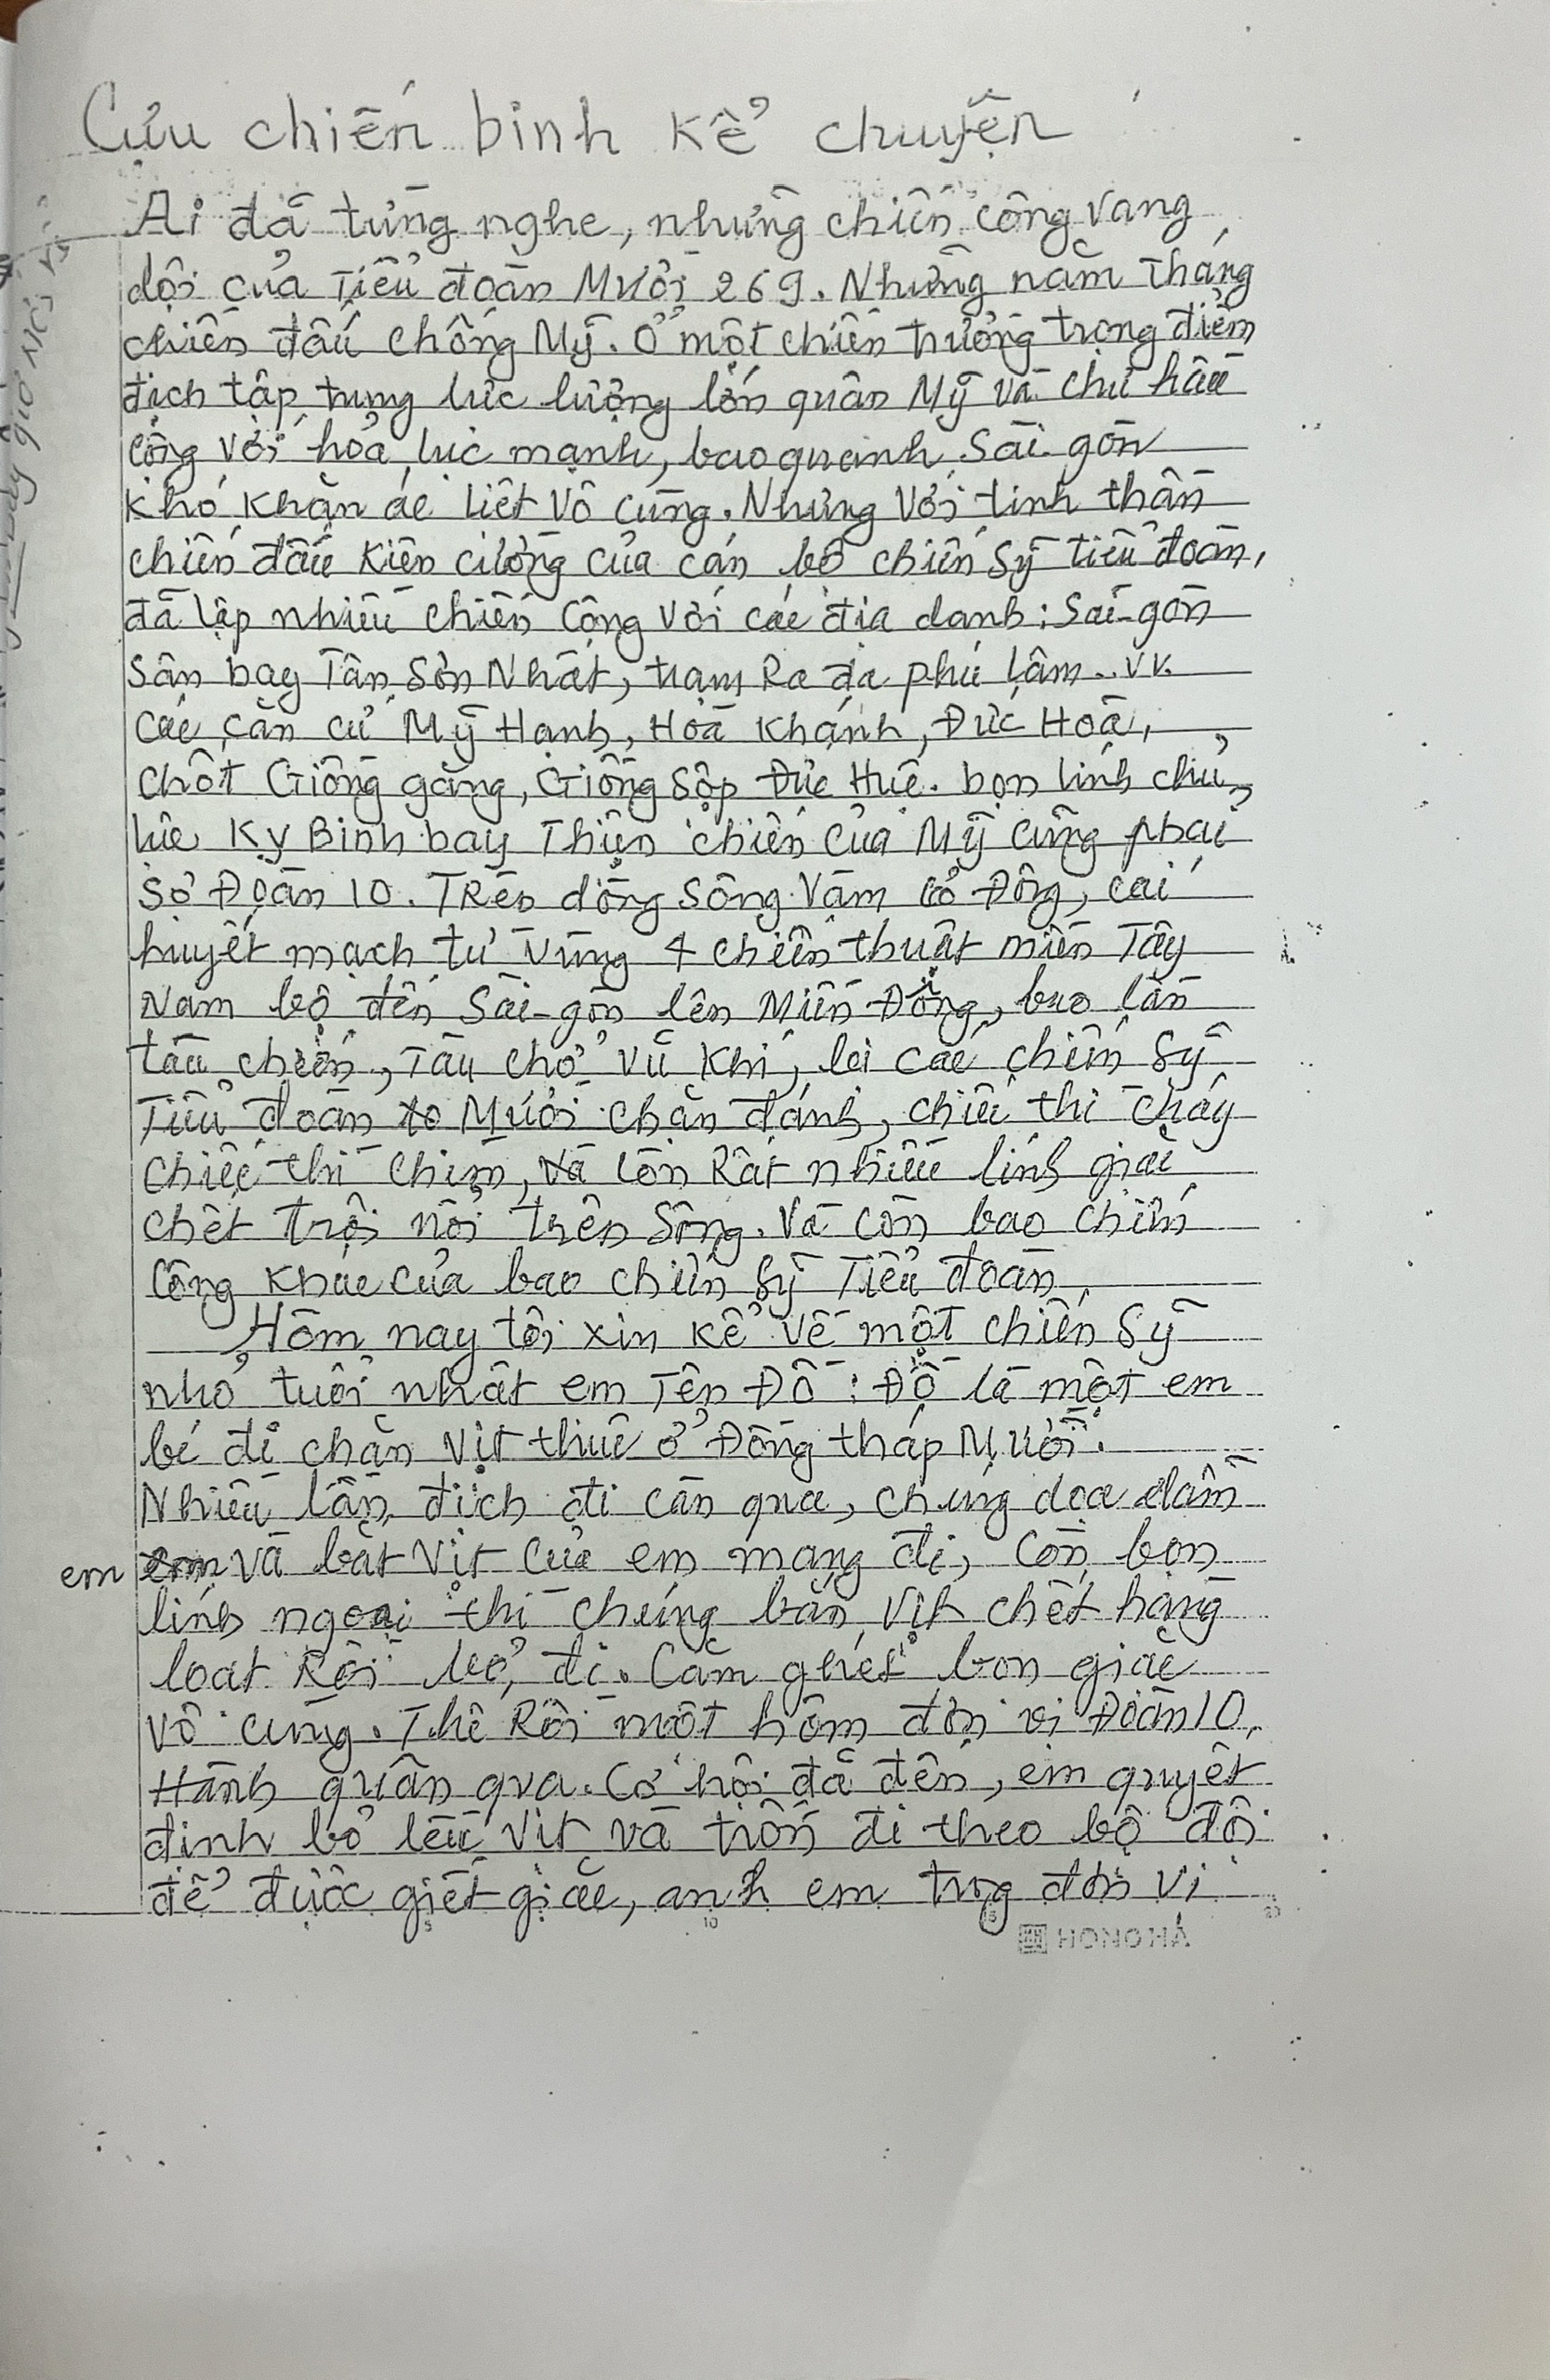 Cựu chiến binh kể chuyện
Ai đã từng nghe, những chiến công vang
dội của Tiểu đoàn Mười 269. Những năm tháng
chiến đấu chống Mỹ. Ở một chiến trường trọng điểm
địch tập trung lực lượng lớn quân Mỹ và chư hầu
cộng với hỏa lực mạnh, bao quanh Sài gòn
khó khăn ác liệt vô cùng. Nhưng với tinh thần
chiến đấu kiên cường của cán bộ chiến sỹ tiểu đoàn,
đã lập nhiều chiến công với các địa danh: Sài-gòn
Sân bay Tân Sơn Nhất, trạm Ra đa phú lâm.. vv.
các căn cứ Mỹ Hạnh, Hoà Khánh, Đức Hoà,
chốt Giồng găng, Giồng Sộp Đức Huệ. bọn lính chủ
lực Kỵ Binh bay Thiện chiến của Mỹ cũng phải
Sợ Đoàn 10. Trên dòng sông Vàm cỏ Đông, cái
huyết mạch từ vùng 4 chiến thuật miền Tây
Nam bộ đến Sài-gòn lên Miền Đông, bao lần
tàu chiến, Tàu chở vũ khí, lại các chiến sỹ
Tiểu đoàn Mười chặn đánh, chiếc thì cháy
chiếc thì chìm, và còn Rất nhiều lính giặc
chết trôi nổi trên sông. Và còn bao chiến
công khác của bao chiến sỹ Tiểu đoàn
Hôm nay tôi xin kể về một chiến sỹ
nhỏ tuổi nhất em Tên Đô : Đô là một em
bé đi chăn vịt thuê ở Đồng tháp Mười.
Nhiều lần địch đi càn qua, chúng dọa dẫm
em và bắt vịt của em mang đi, còn bọn
lính ngoại thì chúng bắn vịt chết hàng
loạt Rồi bỏ đi. Căm ghét bọn giặc
vô cùng. Thế Rồi một hôm đơn vị Đoàn 10,
Hành quân qua. Cơ hội đã đến, em quyết
định bỏ lều vịt và trốn đi theo bộ đội
để được giết giặc, anh em trong đơn vị
HONG HÀ